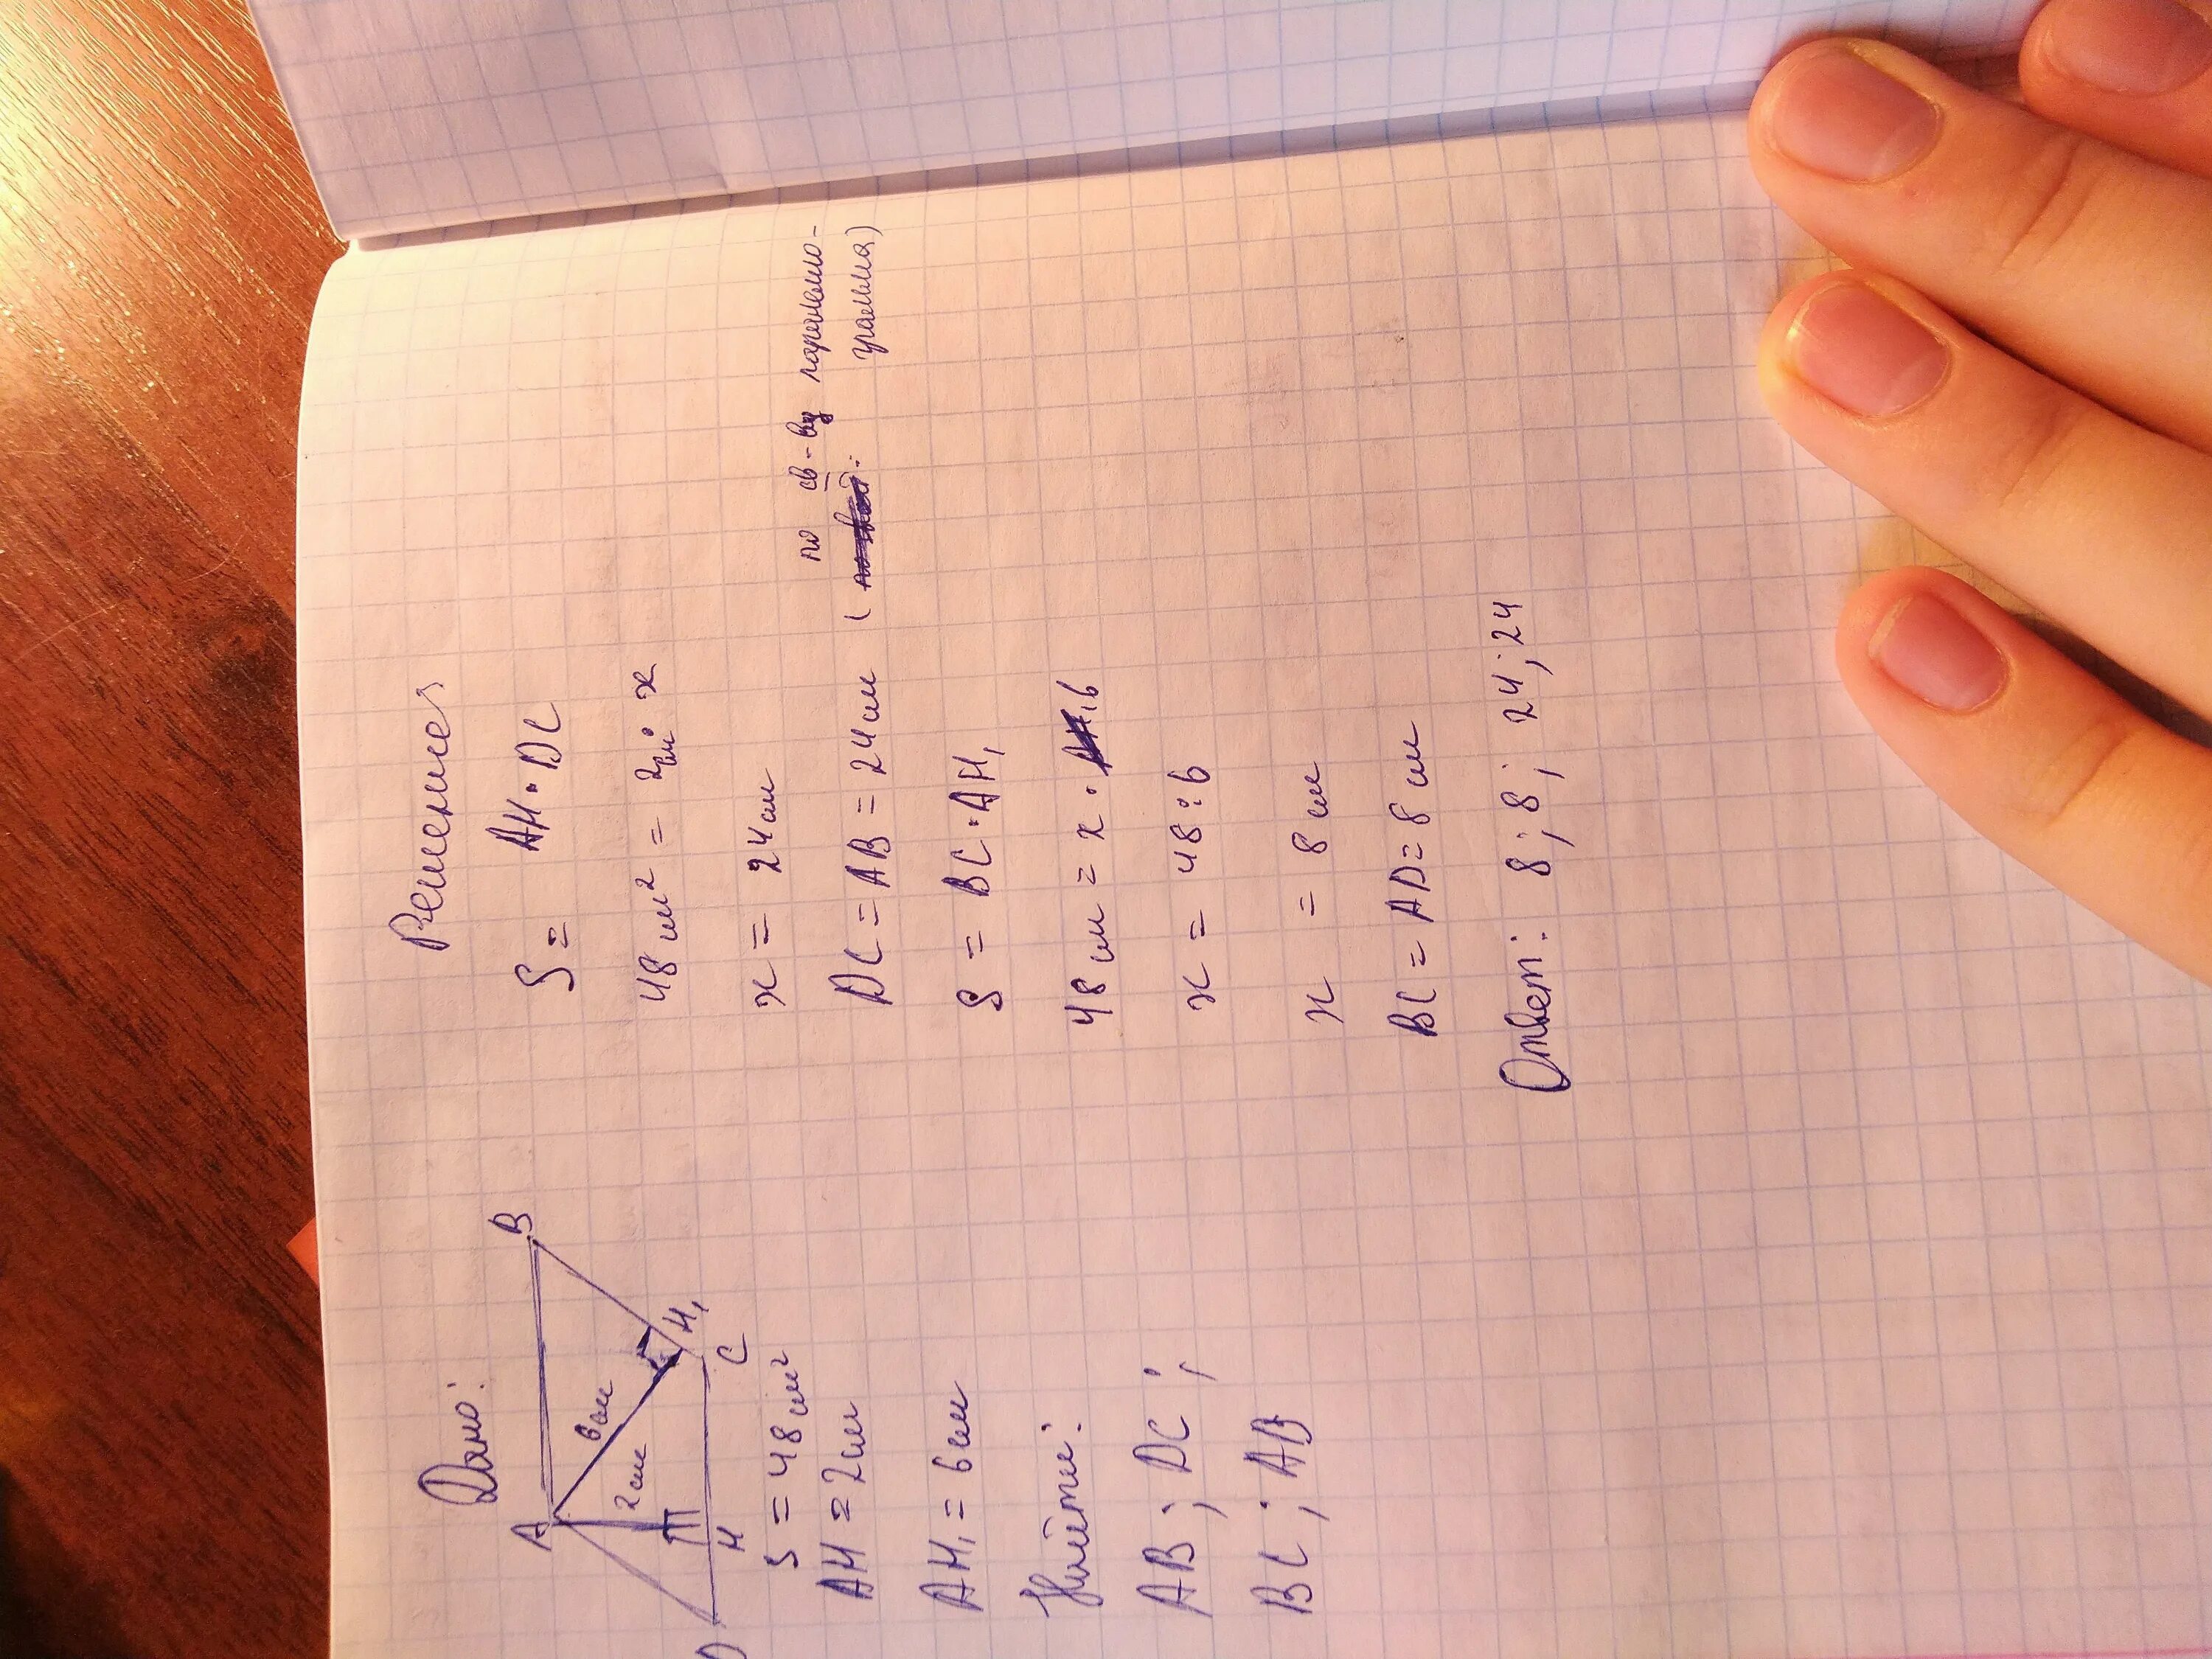 Дано:
A
B
6см
2см
H₁
D
H
C
S = 48 см²
AH = 2см
AH₁ = 6см
Найти:
AB ; DC ;
BC ; AB
Решение
S = AH · DC
48 см² = 2см · x
x = 24см
по св-ву параллело-
DC = AB = 24см ( : грамма)
S = BC · AH₁
48 см = x · 6
x = 48 : 6
x = 8 см
BC = AD = 8 см
Ответ: 8 ; 8 ; 24 ; 24